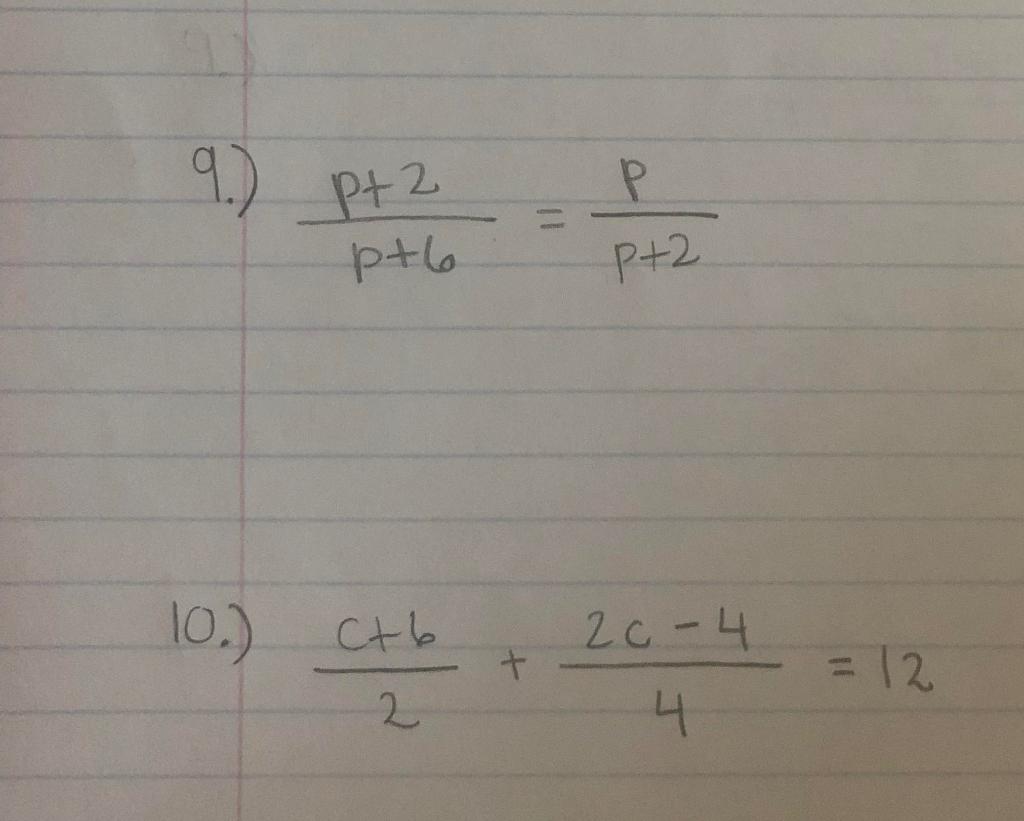 9.) p+2/p+6 = p/p+2
10.) c+6/2 + 2c-4/4 = 12